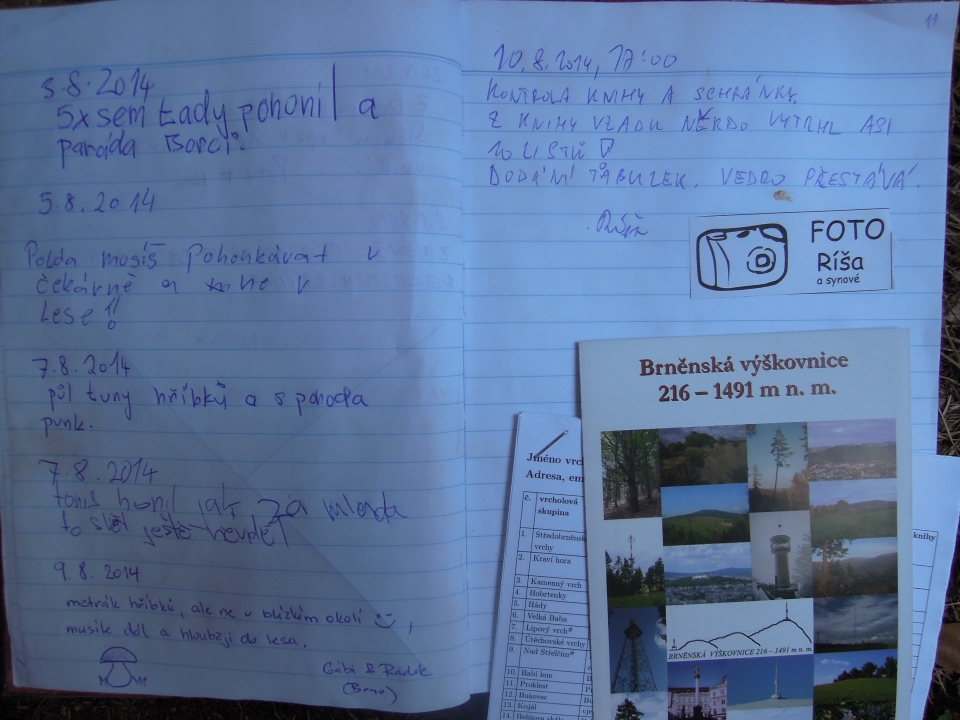 3.8.2014
5x sem tady pohonil a
paráda Borci!
5.8.2014
Polda musíš Pohonkávat v
čekárně a ne v
Lese!!
7.8.2014
půl tuny hříbků a s pohoda
punk.
7.8.2014
honil jak za mlada
to svět ještě neviděl
9.8.2014
metrák hříbků, ale ne v blízkém okolí
musík dál a hlouběji do lesa.
Gábi & Radek
(Brno)
11
10.8.2014, 17:00
KONTROLA KNIHY A SCHRÁNKY.
Z KNIHY VZADU NĚKDO VYTRHL ASI
10 LISTŮ
DODÁNÍ TABULEK. VEDRO PŘESTÁVÁ.
Ríša
FOTO
Ríša
a synové
Brněnská výškovnice
216 – 1491 m n. m.
BRNĚNSKÁ VÝŠKOVNICE 216 – 1491 m n. m.
Jméno vrc
Adresa, em
č. vrcholová
skupina
1. Středobrněnsk
vrchy
2. Kraví hora
3. Kamenný vrch
4. Hobrtenky
5. Hády
6. Velká Baba
7. Lipový vrch#
8. Útěchovské vrchy
9. Nad Střelčím#
10. Babí lom
11. Proklest
12. Bukovec
13. Kojál
14.
knihy